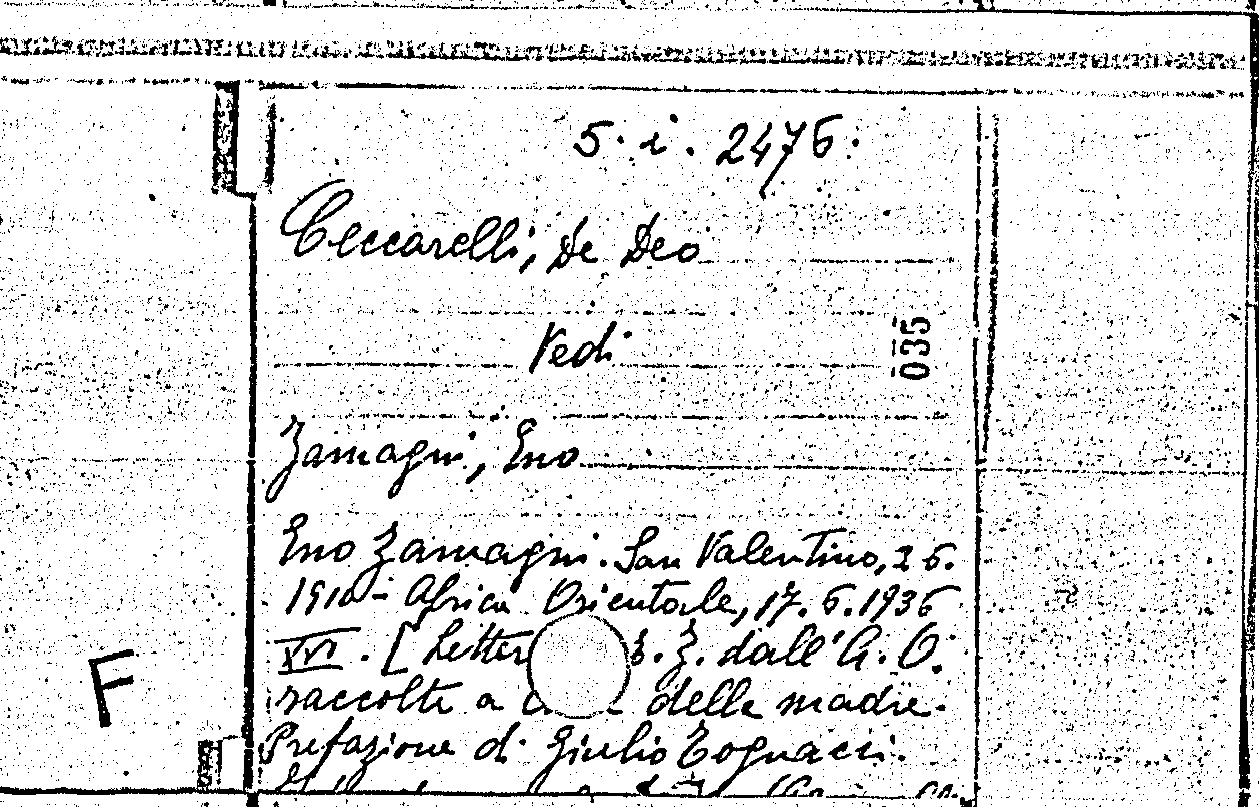 5. i. 2476.
Ceccarelli, De Deo
Vedi
035
Zamagni, Eno
Eno Zamagni. San Valentino, 2 6.
1910 - Africa Orientale, 17. 6. 1936
XVI. [Letter Z. dall'A. O.
F
raccolte a delle madre.
Prefazione di Giulio Tognacci.